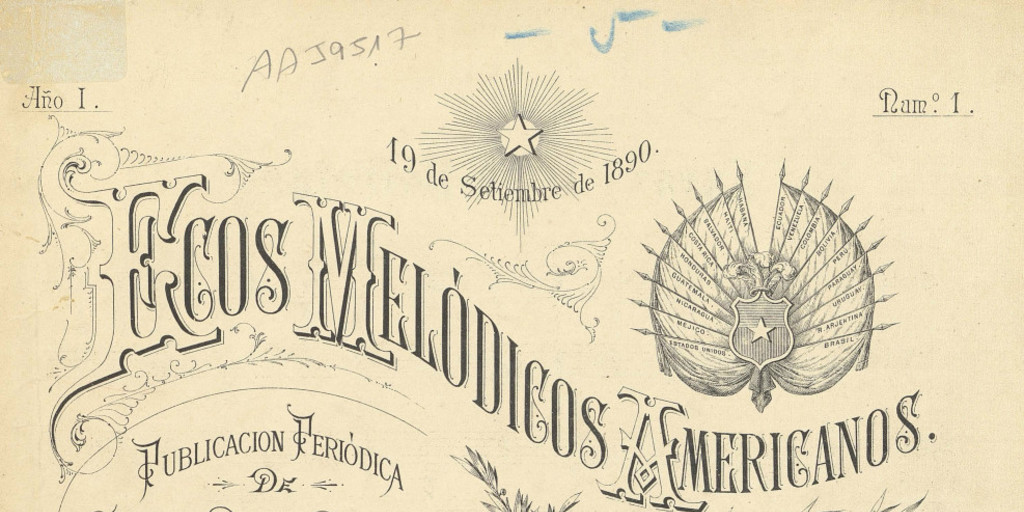 AA J9517
Año I.
Numº. 1.
19 de Setiembre de 1890.
Ecos Melódicos Americanos.
ESTADOS UNIDOS
MEJICO
NICARAGUA
GUATEMALA
HONDURAS
COSTA RICA
SALVADOR
HAYTI
ECUADOR
VENEZUELA
COLOMBIA
BOLIVIA
PERU
PARAGUAY
URUGUAY
R. ARJENTINA
BRASIL
Publicacion Periódica
De